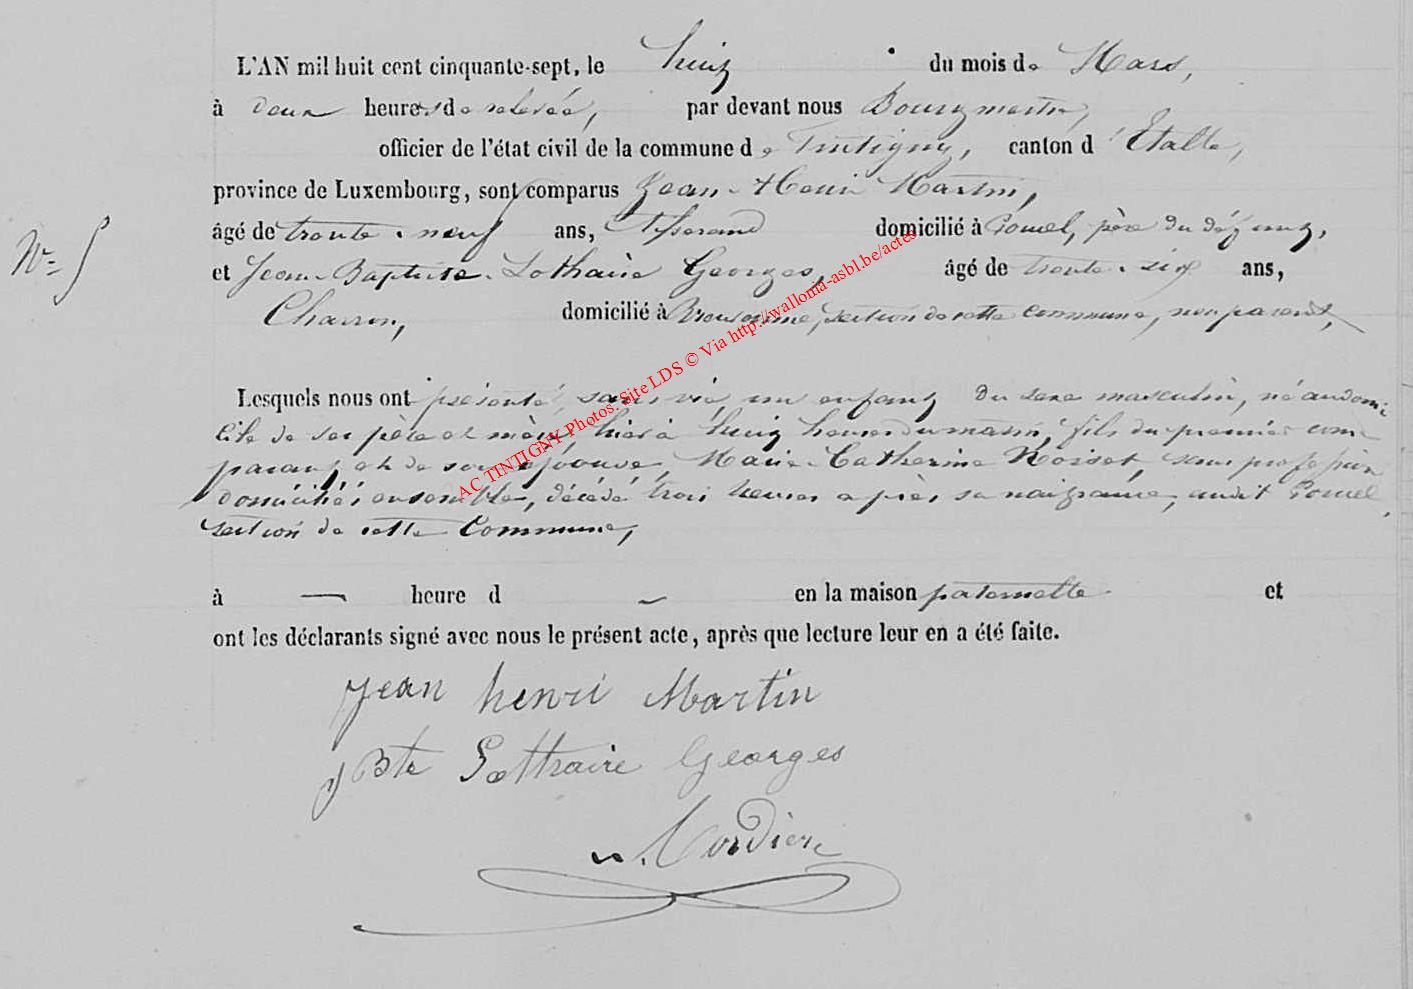 L'AN mil huit cent cinquante-sept, le huit du mois de Mars,
à deux heures de relevée, par devant nous Bourgmestre,
officier de l'état civil de la commune de Tintigny, canton d'Etalle,
province de Luxembourg, sont comparus Jean-Henri Martin,
âgé de trente-neuf ans, Tisserand domicilié à Poncel, père du défunt,
N° 5
et Jean-Baptiste-Lothaire Georges, âgé de trente-six ans,
Charron, domicilié à section de cette commune, non parent,
Lesquels nous ont présenté, sans vie, un enfant du sexe masculin, né au domi-
cile de ses père et mère, hier à huit heures du matin, fils du premier com-
parant, et de son épouse, Marie-Catherine Noiset, sans profession
domiciliés ensemble, décédé trois heures après sa naissance, audit Poncel,
section de cette Commune,
à — heure d — en la maison paternelle et
ont les déclarants signé avec nous le présent acte, après que lecture leur en a été faite.
Jean henri Martin
J Bte Lothaire Georges
Cordier
AC TINTIGNY Photos. Site LDS © Via http://walloma-asbl.be/actes